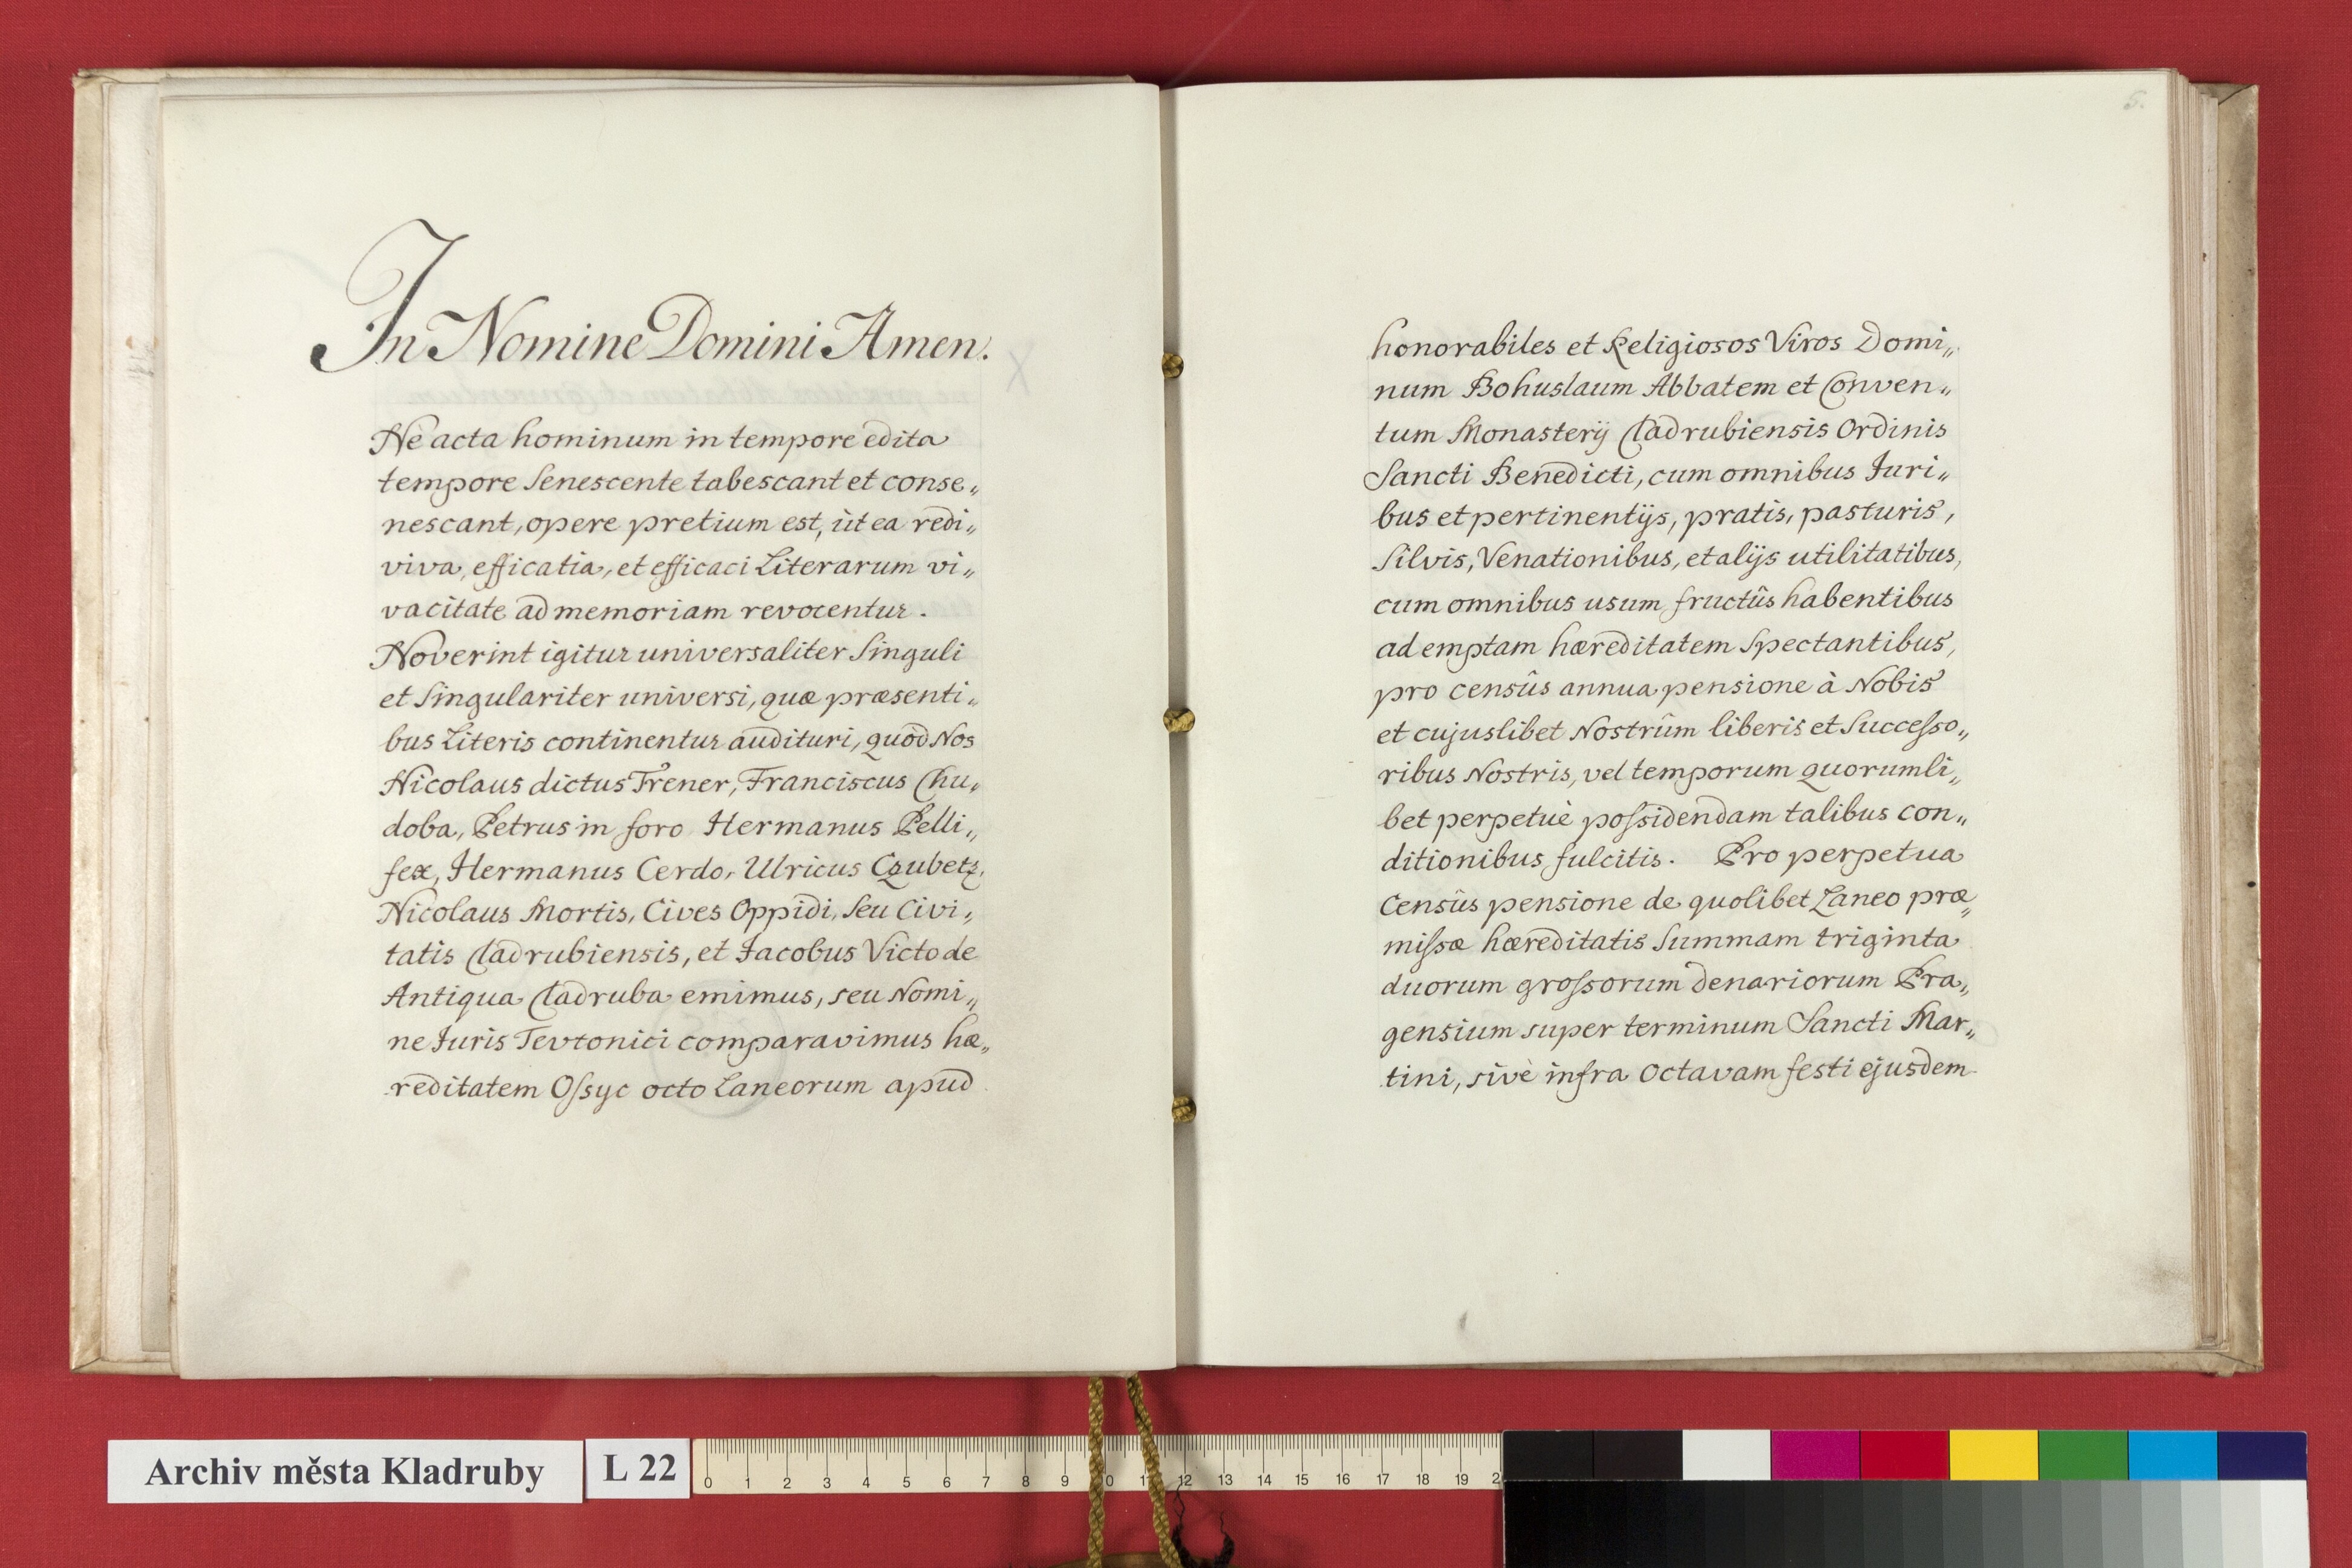 In Nomine Domini Amen.
Nè acta hominum in tempore edita
tempore Senescente tabescant et conse„
nescant, opere pretium est, ùt ea redi„
viva, efficatia, et efficaci Literarum vi„
vacitate ad memoriam revocentur.
Noverint igitur universaliter Singuli
et Singulariter universi, quæ præsenti„
bus Literis continentur audituri, quòd Nos
Nicolaus dictus Trener, Franciscus Chu„
doba, Petrus in foro Hermanus Pelli„
fex, Hermanus Cerdo, Ulricus Czubetz,
Nicolaus Mortis, Cives Oppidi, Seu Civi„
tatis Cladrubiensis, et Jacobus Victo de
Antiqua Cladruba emimus, seu Nomi„
ne Juris Tevtonici comparavimus hæ„
reditatem Oſsyc octo Laneorum apud
5.
honorabiles et Religiosos Viros Domi„
num Bohuslaum Abbatem et Conven„
tum Monasterij Cladrubiensis Ordinis
Sancti Benedicti, cum omnibus Juri„
bus et pertinentijs, pratis, pasturis,
Silvis, Venationibus, et alijs utilitatibus,
cum omnibus usum fructûs habentibus
ad emptam hæreditatem Spectantibus,
pro censûs annua pensione à Nobis
et cujuslibet Nostrûm liberis et Succeſso„
ribus Nostris, vel temporum quorumli„
bet perpetuè poſsidendam talibus con„
ditionibus fulcitis. Pro perpetua
Censûs pensione de quolibet Laneo præ„
miſsæ hæreditatis Summam triginta
duorum groſsorum denariorum Pra„
gensium super terminum Sancti Mar„
tini, sivè infra Octavam festi ejusdem
Archiv města Kladruby
L 22
0 1 2 3 4 5 6 7 8 9 10 11 12 13 14 15 16 17 18 19 2